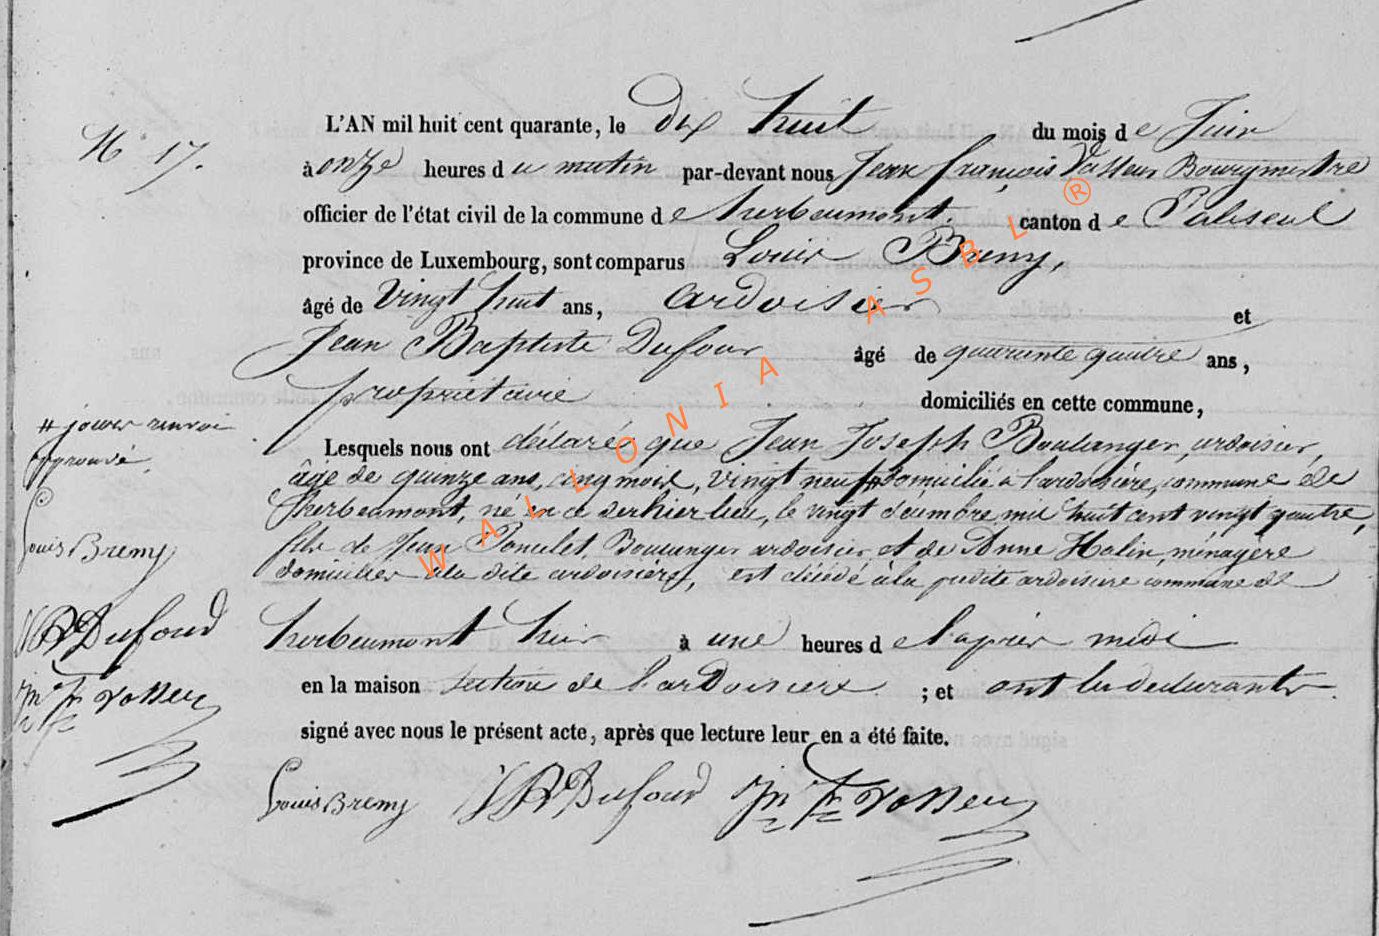 N° 17.
L'AN mil huit cent quarante, le Dix huit du mois de Juin
à onze heures du matin par-devant nous Jean françois Vasseur Bourgmestre
officier de l'état civil de la commune de herbeumont, canton de Paliseul
province de Luxembourg, sont comparus Louis Bremy,
âgé de vingt huit ans, ardoisier et
Jean Baptiste Dufour âgé de quarante quatre ans,
propriétaire domiciliés en cette commune,
Lesquels nous ont déclaré que Jean Joseph Boulanger, ardoisier,
âgé de quinze ans, cinq mois, vingt neuf # domicilié à l'ardoisière, commune de
herbeumont, né en ce dernier lieu, le vingt décembre mil huit cent vingt quatre,
fils de Jean Poncelet Boulanger ardoisier et de Anne Halin, ménagère
domiciliés à la dite ardoisière, est décédé à la predite ardoisiere commune de
herbeumont hier à une heures de l'aprés midi
en la maison section de l'ardoisiere ; et ont les declarants
signé avec nous le présent acte, après que lecture leur en a été faite.
# jours renvoi
approuvé
Louis Bremy
JB Dufour
Jn Fr Vasseur
Louis Bremy JB Dufour Jn Fr Vasseur
WALLONIA ASBL ®